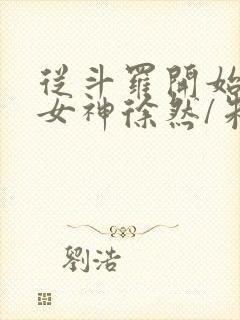 從斗羅開始
女神徐然/朱
劉浩